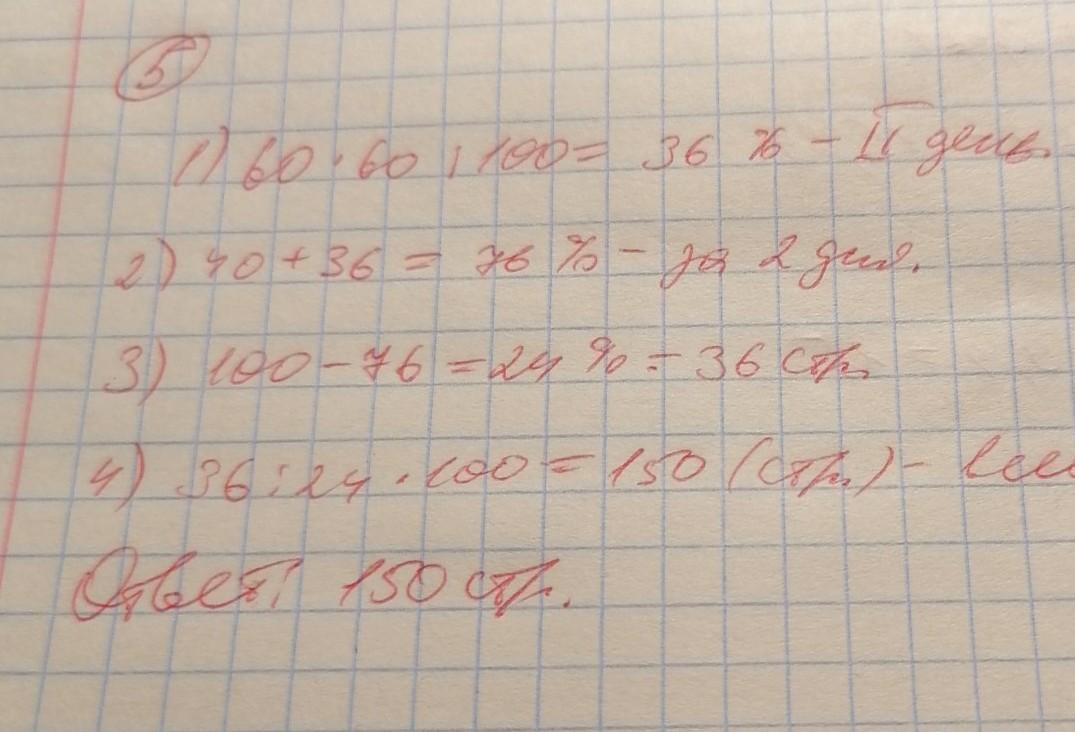 5
1) 60 · 60 : 100 = 36 % - II день.
2) 40 + 36 = 76 % - за 2 дня.
3) 100 - 76 = 24 % = 36 стр.
4) 36 : 24 · 100 = 150 (стр.) -
Ответ: 150 стр.